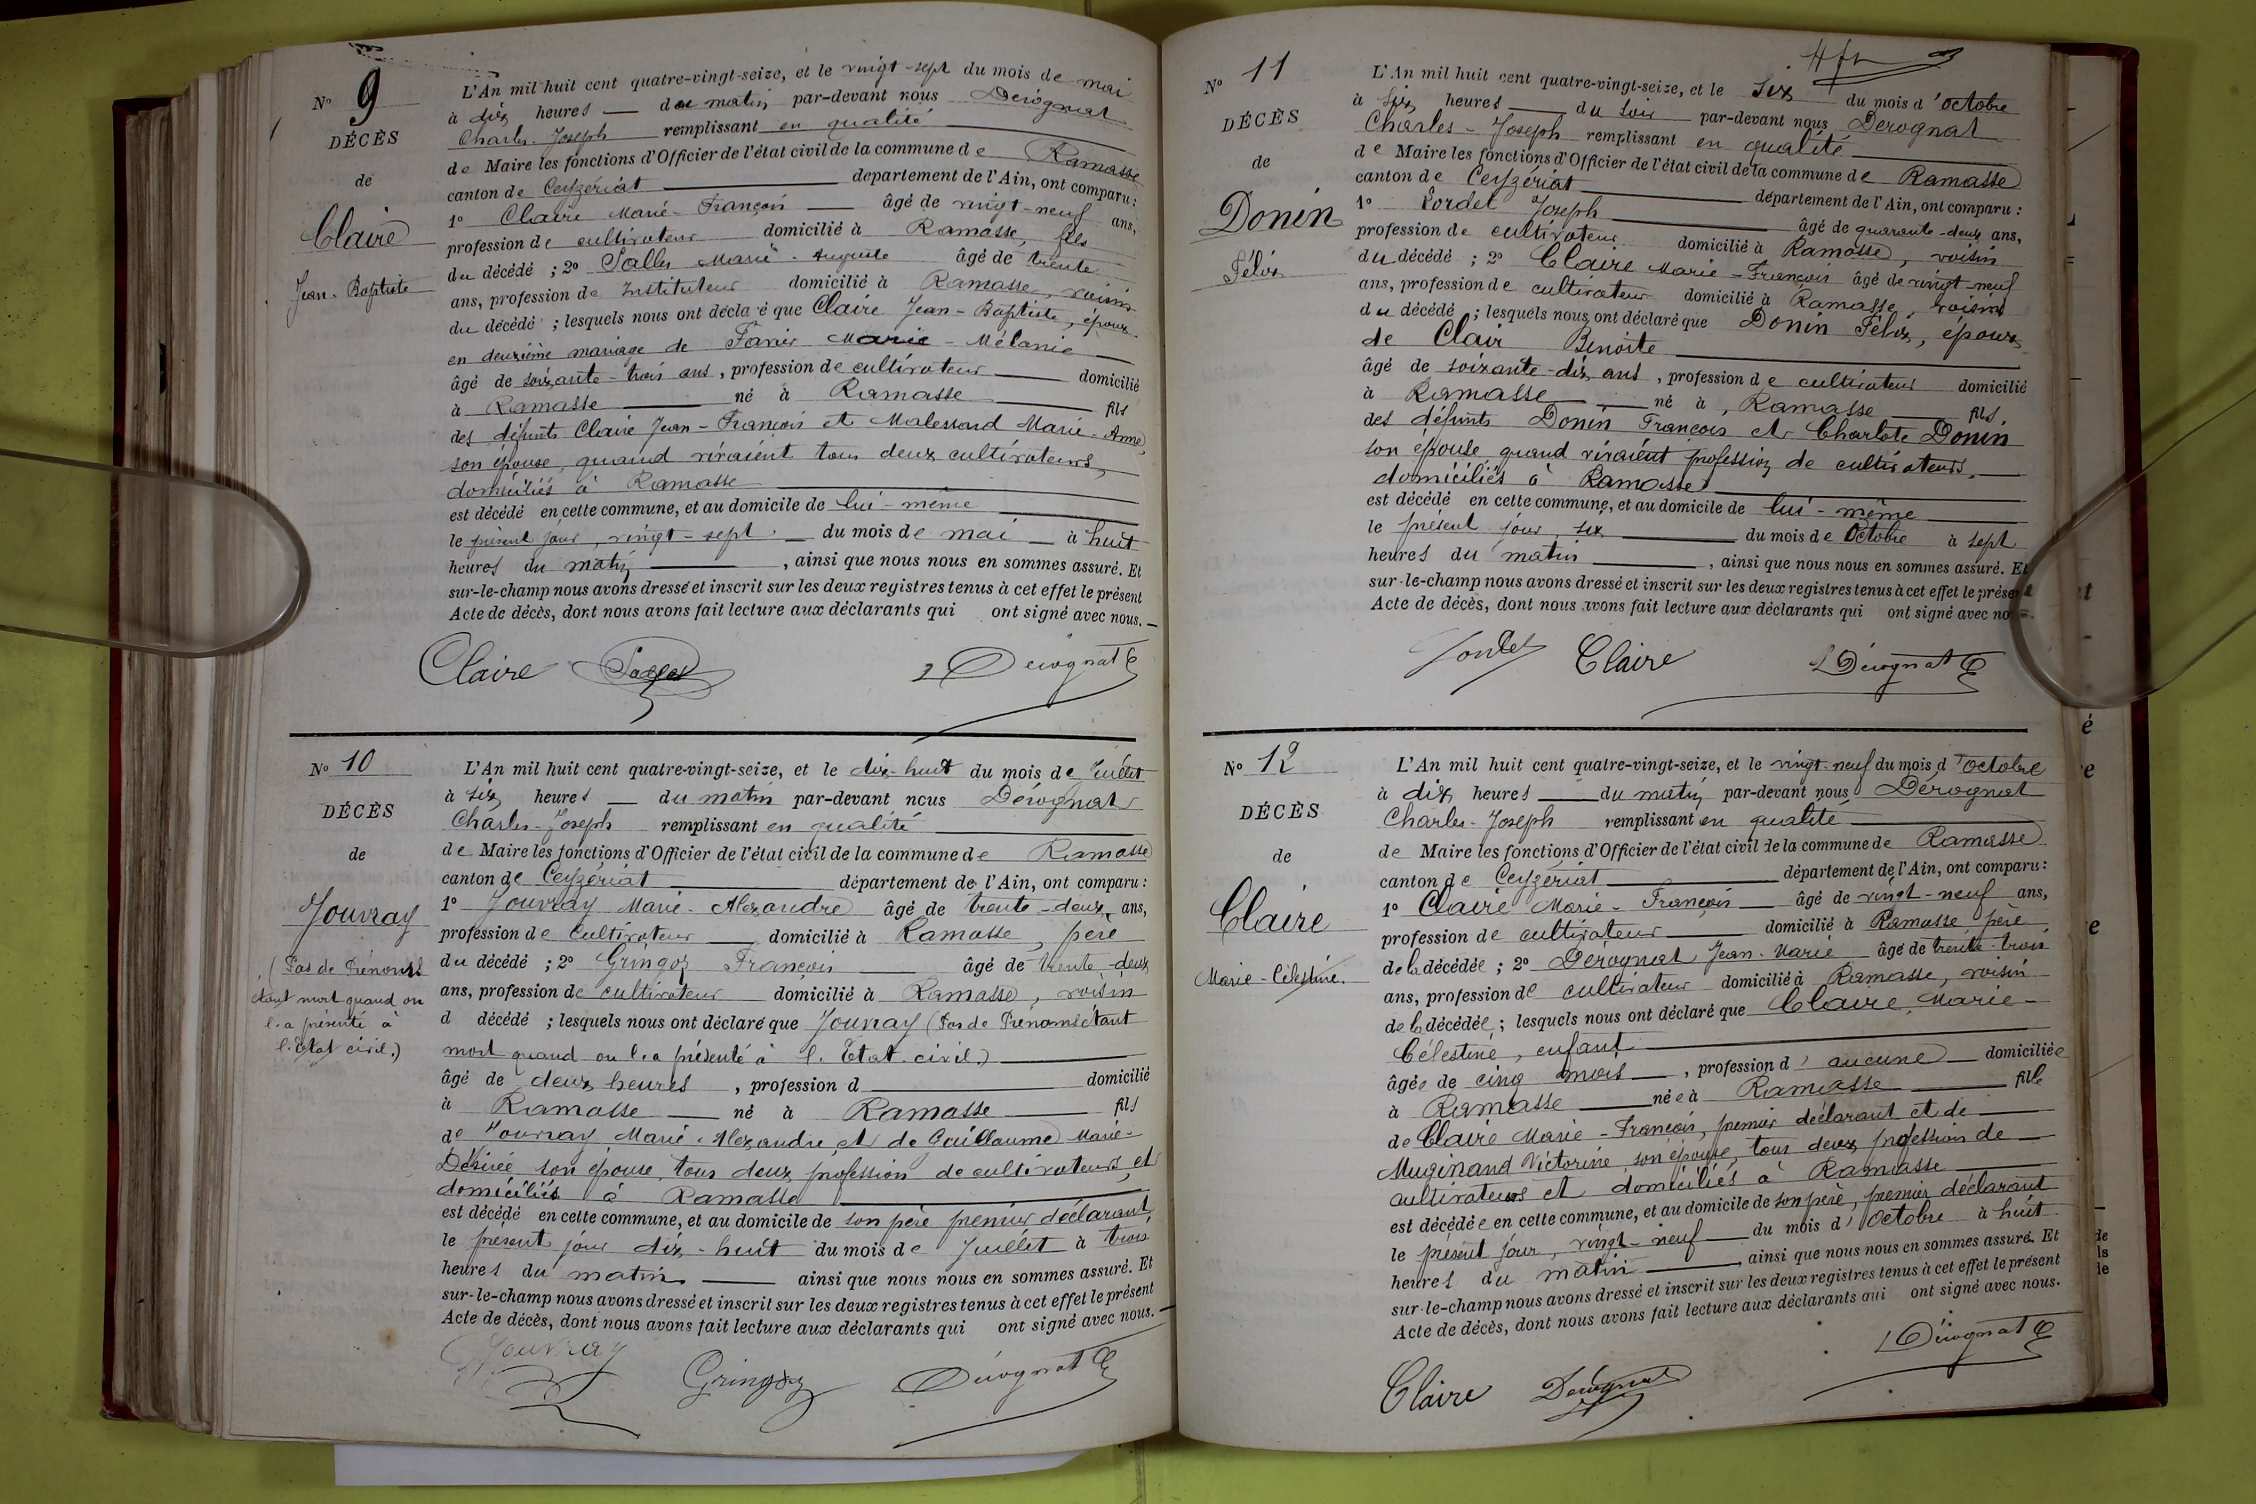 N° 9
DÉCÈS
de
Claire
Jean-Baptiste
L'An mil huit cent quatre-vingt-seize, et le vingt-sept du mois de mai
à dix heures du matin par-devant nous Dérognat
Charles-Joseph remplissant en qualité
de Maire les fonctions d'Officier de l'état civil de la commune de Ramasse
canton de Ceyzériat département de l'Ain, ont comparu :
1° Claire Marie-François âgé de vingt-neuf ans,
profession de cultivateur domicilié à Ramasse, fils
du décédé ; 2° Salles Marie-Auguste âgé de trente
ans, profession de Instituteur domicilié à Ramasse, voisin
du décédé ; lesquels nous ont déclaré que Claire Jean-Baptiste, époux
en deuxième mariage de Favier Marie-Mélanie
âgé de soixante-trois ans, profession de cultivateur domicilié
à Ramasse né à Ramasse fils
des défunts Claire Jean-François et Malessard Marie-Anne,
son épouse, quand vivaient tous deux cultivateurs,
domiciliés à Ramasse
est décédé en cette commune, et au domicile de lui-même
le présent jour, vingt-sept du mois de mai à huit
heures du matin, ainsi que nous nous en sommes assuré. Et
sur-le-champ nous avons dressé et inscrit sur les deux registres tenus à cet effet le présent
Acte de décès, dont nous avons fait lecture aux déclarants qui ont signé avec nous.
Claire Salles Dérognat
N° 10
DÉCÈS
de
Jouvray
(Pas de Prénoms
étant mort quand on
l'a présenté à
l'Etat civil.)
L'An mil huit cent quatre-vingt-seize, et le dix-huit du mois de Juillet
à six heures du matin par-devant nous Dérognat
Charles-Joseph remplissant en qualité
de Maire les fonctions d'Officier de l'état civil de la commune de Ramasse
canton de Ceyzériat département de l'Ain, ont comparu :
1° Jouvray Marie-Alexandre âgé de trente-deux ans,
profession de Cultivateur domicilié à Ramasse, père
du décédé ; 2° Gringoz François âgé de trente-deux
ans, profession de cultivateur domicilié à Ramasse, voisin
d décédé ; lesquels nous ont déclaré que Jouvray (Pas de Prénoms étant
mort quand on l'a présenté à l'Etat civil.)
âgé de deux heures, profession d domicilié
à Ramasse né à Ramasse fils
de Jouvray Marie-Alexandre et de Guillaume Marie-
Désirée son épouse, tous deux profession de cultivateurs, et
domiciliés à Ramasse
est décédé en cette commune, et au domicile de son père premier déclarant
le présent jour dix-huit du mois de Juillet à trois
heures du matin ainsi que nous nous en sommes assuré. Et
sur-le-champ nous avons dressé et inscrit sur les deux registres tenus à cet effet le présent
Acte de décès, dont nous avons fait lecture aux déclarants qui ont signé avec nous.
Jouvray Gringoz Dérognat
N° 11
DÉCÈS
de
Donin
Félix
L'An mil huit cent quatre-vingt-seize, et le six du mois d'octobre
à six heures du soir par-devant nous Dérognat
Charles-Joseph remplissant en qualité
de Maire les fonctions d'Officier de l'état civil de la commune de Ramasse
canton de Ceyzériat département de l'Ain, ont comparu :
1° Joseph âgé de quarante-deux ans,
profession de cultivateur domicilié à Ramasse, voisin
du décédé ; 2° Claire Marie-François âgé de vingt-neuf
ans, profession de cultivateur domicilié à Ramasse, voisin
du décédé ; lesquels nous ont déclaré que Donin Félix, époux
de Clair Benoite
âgé de soixante-dix ans, profession de cultivateur domicilié
à Ramasse né à Ramasse fils,
des défunts Donin François et Charlote Donin
son épouse quand vivaient profession de cultivateurs,
domiciliés à Ramasse
est décédé en cette commune, et au domicile de lui-même
le présent jour six du mois de Octobre à sept
heures du matin, ainsi que nous nous en sommes assuré. Et
sur-le-champ nous avons dressé et inscrit sur les deux registres tenus à cet effet le présent
Acte de décès, dont nous avons fait lecture aux déclarants qui ont signé avec no
Claire Dérognat
N° 12
DÉCÈS
de
Claire
Marie-Célestine.
L'An mil huit cent quatre-vingt-seize, et le vingt-neuf du mois d'octobre
à dix heures du matin par-devant nous Dérognat
Charles-Joseph remplissant en qualité
de Maire les fonctions d'Officier de l'état civil de la commune de Ramasse
canton de Ceyzériat département de l'Ain, ont comparu :
1° Claire Marie-François âgé de vingt-neuf ans,
profession de cultivateur domicilié à Ramasse père
de la décédée ; 2° Dérognat Jean-Marie âgé de trente-trois
ans, profession de cultivateur domicilié à Ramasse, voisin
de la décédée ; lesquels nous ont déclaré que Claire Marie-
Célestine, enfant
âgée de cinq mois, profession d'aucune domiciliée
à Ramasse née à Ramasse fille
de Claire Marie-François, premier déclarant et de
Muginand Victorine son épouse, tous deux profession de
cultivateurs et domiciliés à Ramasse
est décédée en cette commune, et au domicile de son père, premier déclarant
le présent jour, vingt-neuf du mois d'octobre à huit
heures du matin, ainsi que nous nous en sommes assuré. Et
sur-le-champ nous avons dressé et inscrit sur les deux registres tenus à cet effet le présent
Acte de décès, dont nous avons fait lecture aux déclarants qui ont signé avec nous.
Claire Dérognat Dérognat